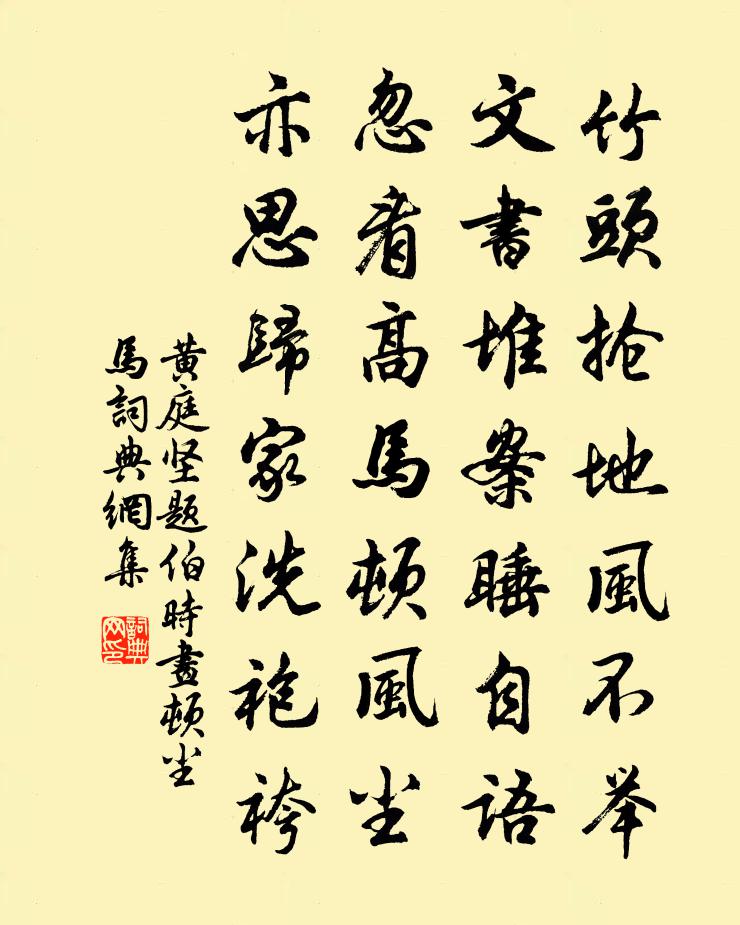 竹頭搶地風不举
文書堆案睡自語
忽看高馬頓風尘
亦思歸家洗袍袴
黄庭坚题伯時畫頓尘
馬詞典網集
詞典网印